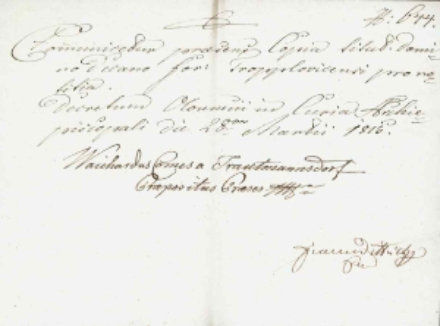 №: 644.
Communicetur praesens Copia titul: Domi-
no Decano for: Tropplovicensi pro no-
titia.
Decretum Olomucii in Curia Archie-
piscopali die 28va Martii 1815.
Waichardus Comes a Trautmannsdorf
Praepositus Praeses